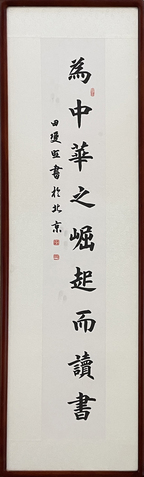 為中華之崛起而讀書
田書於北京